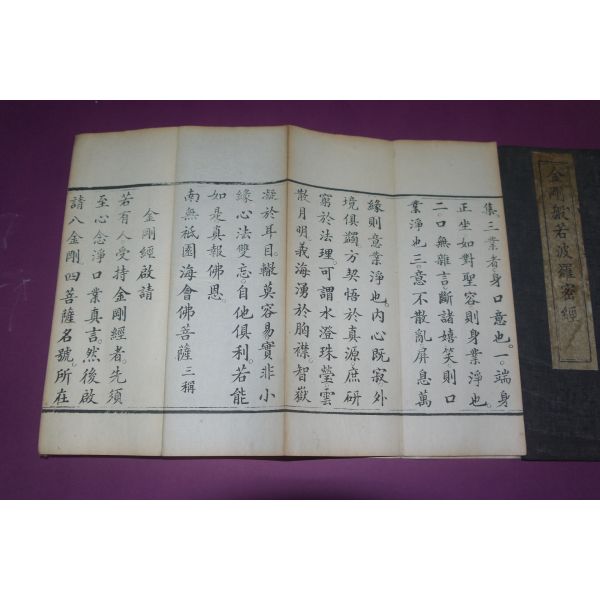 金剛般若波羅密經
集三業者。身口意也。一。端身
正坐如對聖容則身業淨也。
二。口無雜言。斷諸嬉笑則口
業淨也三意不散亂屏息萬
緣則意業淨也。內心既寂外
境俱蠲方契悟於真源庶研
窮於法理。可謂水澄珠瑩雲
散月明。義海湧於胸襟。智嶽
凝於耳目。輟莫容易實非小
緣心法雙忘。自他俱利。若能
如是真報佛恩。
南無祇園海會佛菩薩 三稱
金剛經啟請
若有人受持金剛經者。先須
至心念淨口業真言。然後啟
請八金剛四菩薩名號。所在